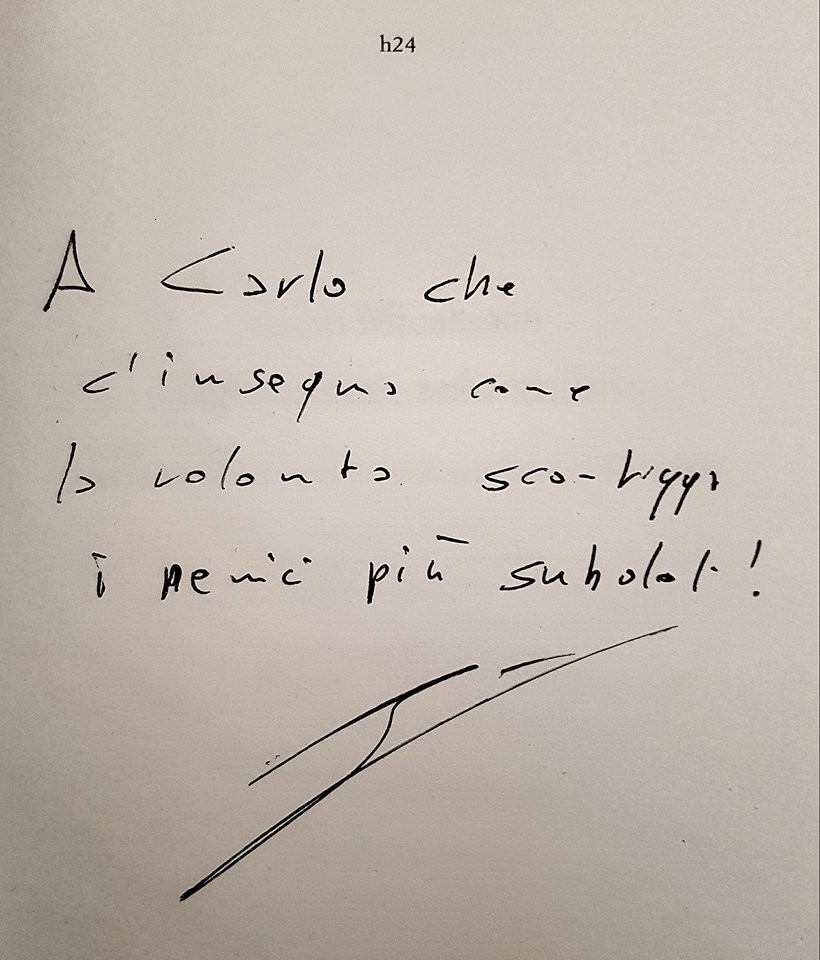 h24
A Carlo che
c'insegna come
la volontà sconfigge
i nemici più subdoli!